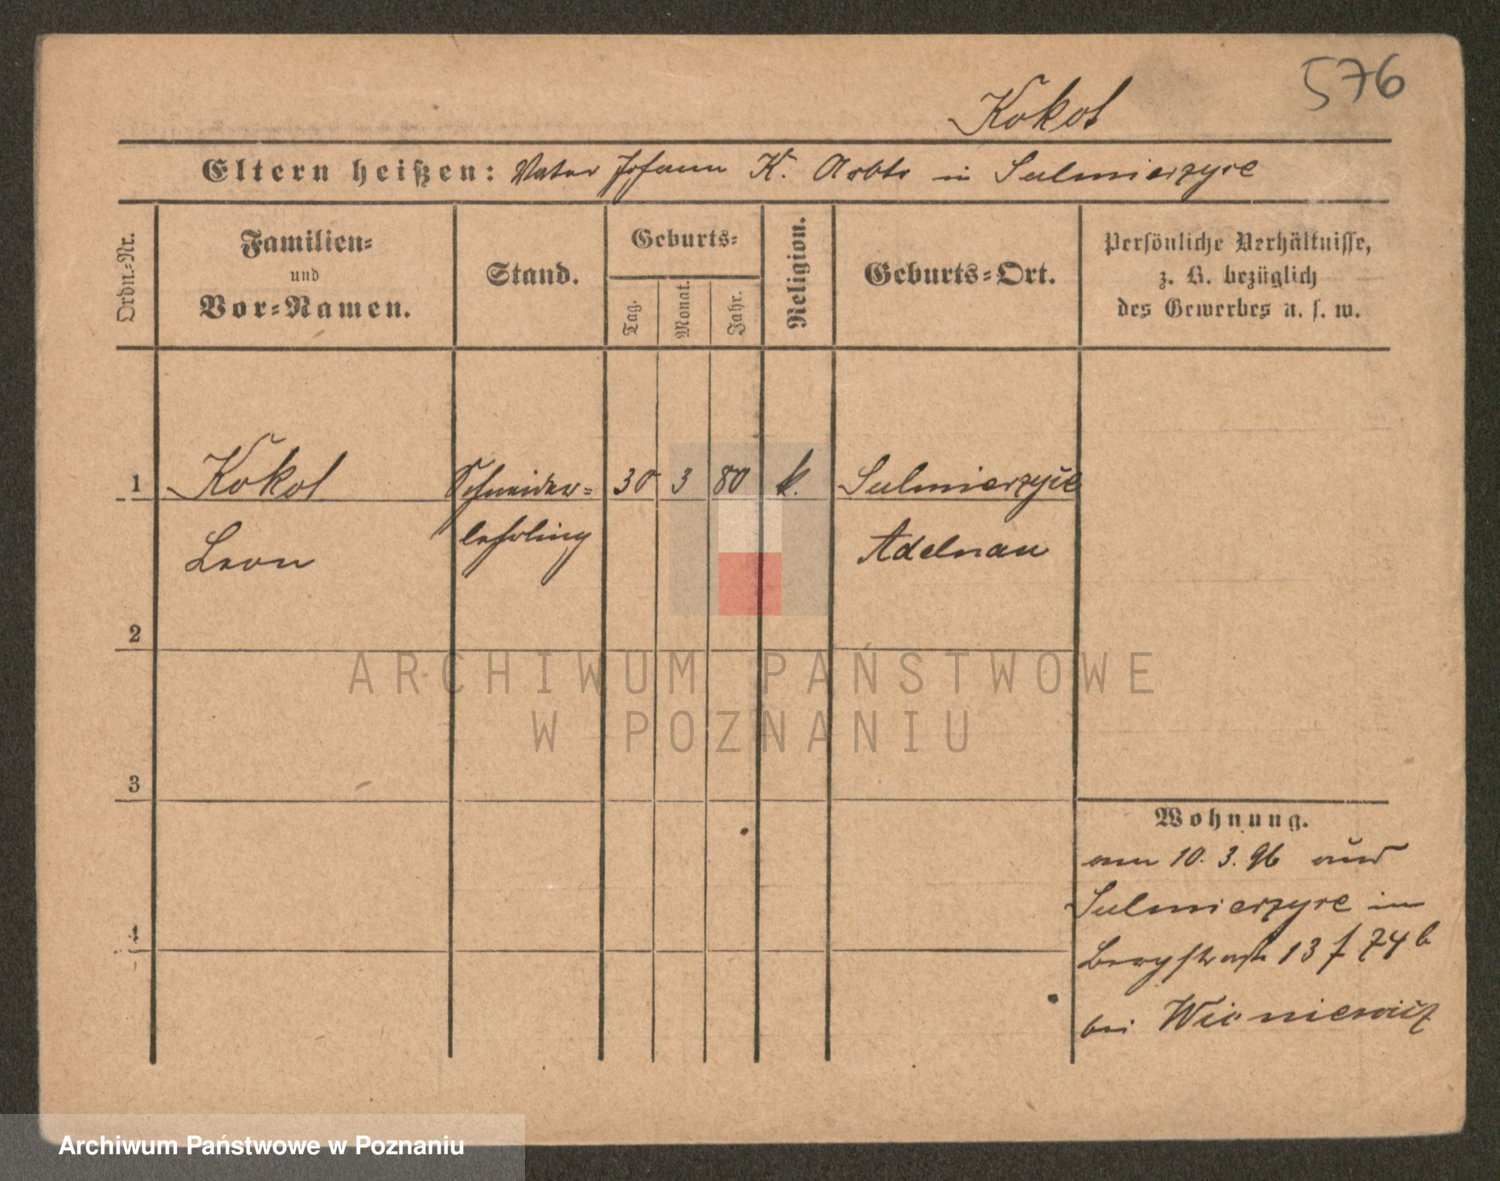 576
Kokot
Eltern heißen: Vater Johann K. Arbtr in Sulmierzyce
Ordn.-Nr.
Familien- und Vor-Namen.
Stand.
Geburts-
Tag.
Monat.
Jahr.
Religion.
Geburts-Ort.
Persönliche Verhältnisse,
z. B. bezüglich
des Gewerbes u. s. w.
1 Kokot Schneider- 30 3 80 k. Sulmierzyce
Leon lehrling Adelnau
2
ARCHIWUM PAŃSTWOWE
W POZNANIU
3
Wohnung.
am 10. 3. 96 aus
Sulmierzyce in
4
Bergstraße 13 f 74 b
bei
Archiwum Państwowe w Poznaniu